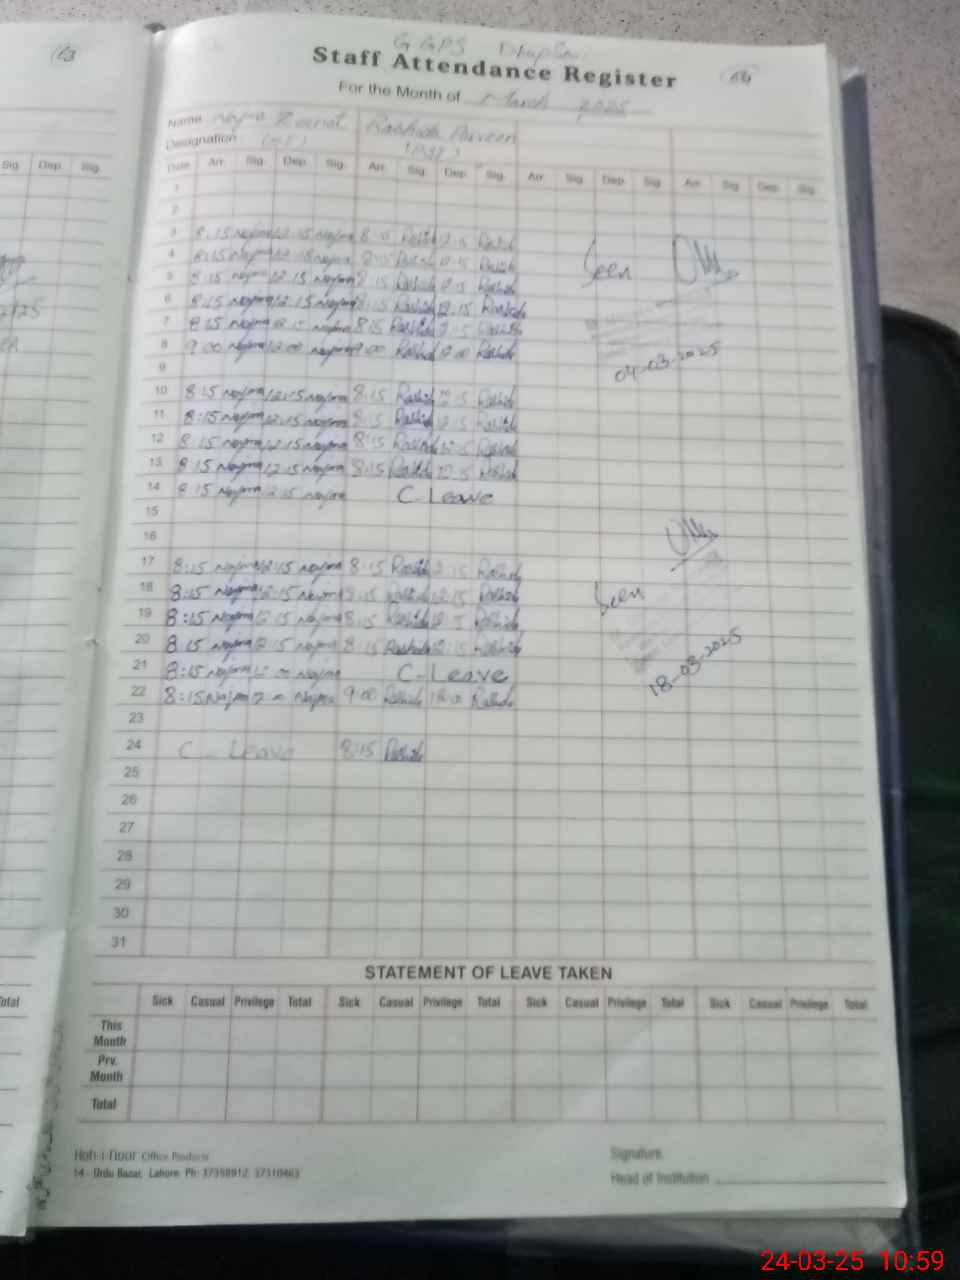 63
G GPS
64
Staff Attendance Register
For the Month of March 2025
Name Najma Rashida Parveen
Designation
Sig. Dep. Sig.
Date Arr. Sig. Dep. Sig. Arr. Sig. Dep. Sig. Arr. Sig. Dep. Sig. Arr. Sig. Dep. Sig.
1
2
3 8:15 Najma 12:15 Najma 8:15 Rashid 12:15 Rashid
4 8:15 Najma 12:15 Najma 8:15 Rashid 12:15 Rashid
Seen
5 8:15 Najma 12:15 Najma 8:15 Rashid 12:15 Rashid
6 8:15 Najma 12:15 Najma 8:15 Rashid 12:15 Rashida
7 8:15 Najma 12:15 Najma 8:15 Rashida 12:15 Rashida
8 9:00 Najma 12:00 Najma 9:00 Rashida 12:00 Rashida
04-03-2025
9
10 8:15 Najma 12:15 Najma 8:15 Rashid 12:15 Rashid
11 8:15 Najma 12:15 Najma 8:15 Rashid 12:15 Rashid
12 8:15 Najma 12:15 Najma 8:15 Rashida 12:15 Rashid
13 8:15 Najma 12:15 Najma 8:15 Rashida 12:15 Rashid
14 8:15 Najma 12:15 Najma C-Leave
15
16
17 8:15 Najma 12:15 Najma 8:15 Rashid 12:15 Rashida
18 8:15 Najma 12:15 Najma 8:15 Rashid 12:15 Rashida
Seen
19 8:15 Najma 12:15 Najma 8:15 Rashida 12:15 Rashida
20 8:15 Najma 12:15 Najma 8:15 Rashida 12:15 Rashida
18-03-2025
21 8:15 Najma 12:00 Najma C-Leave
22 8:15 Najma 12:00 Najma 9:00 Rashida 12:00 Rashida
23
24 C-Leave 8:15 Rashida
25
26
27
28
29
30
31
STATEMENT OF LEAVE TAKEN
Sick Casual Privilege Total Sick Casual Privilege Total Sick Casual Privilege Total Sick Casual Privilege Total
This Month
Prv. Month
Total
Office Products
14 - Urdu Bazar, Lahore. Ph: 37358912, 37310463
Signature
Head of Institution
24-03-25 10:59